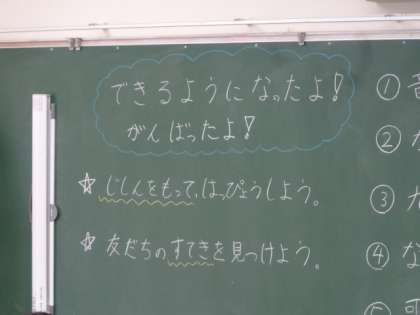 できるようになったよ!
がんばったよ!
☆じしんをもって、はっぴょうしよう。
☆友だちのすてきを見つけよう。
①
②
③
④な
⑤